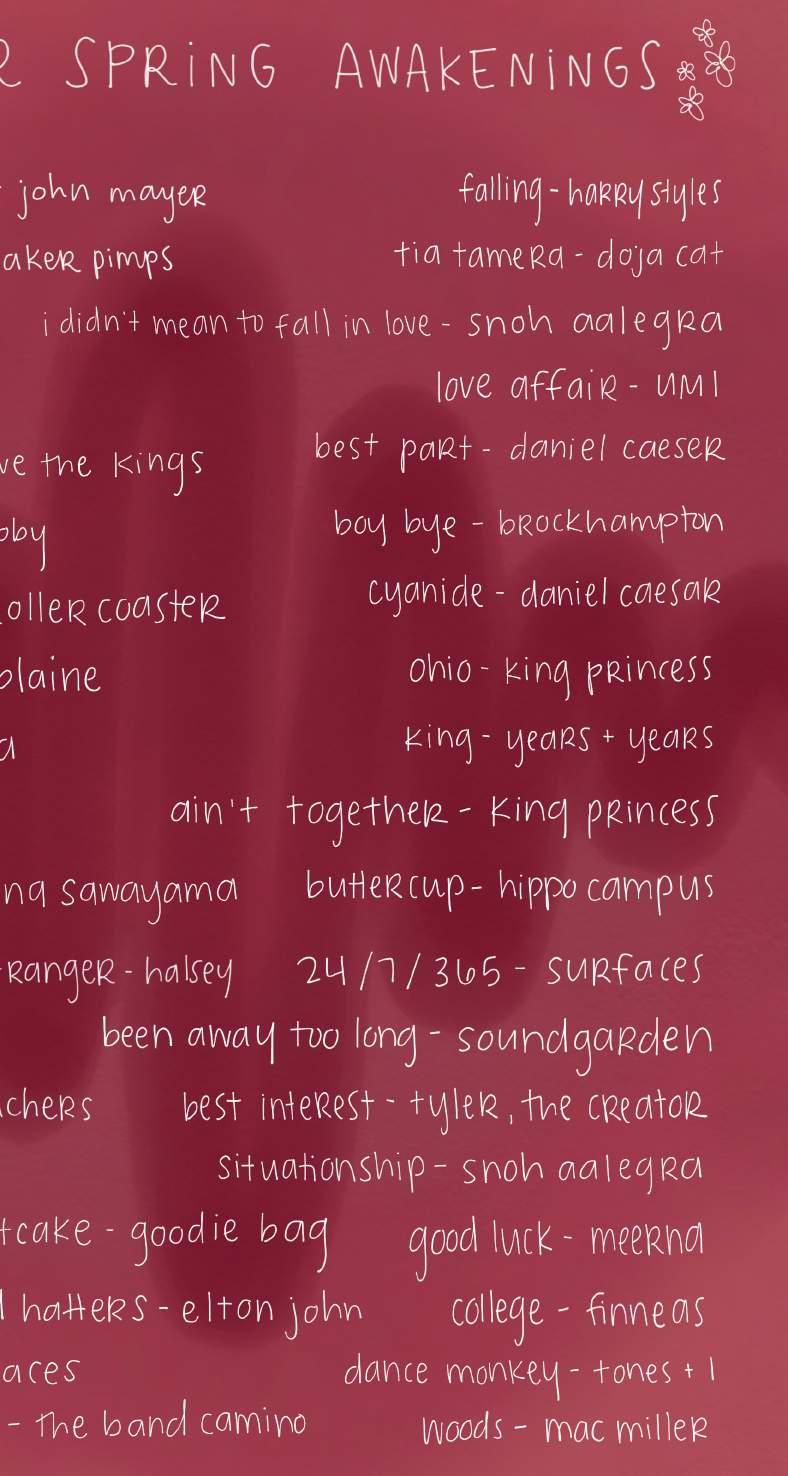 R SPRING AWAKENINGS
- john mayer
falling - harry styles
aker pimps
tia tamera - doja cat
i didn't mean to fall in love - snoh aalegra
love affair - UMI
best part - daniel caeser
ve the kings
boy bye - brockhampton
oby
cyanide - daniel caesar
oller coaster
ohio - king princess
plaine
king - years + years
a
ain't together - king princess
na sawayama
buttercup - hippo campus
ranger - halsey
24/7/365 - surfaces
been away too long - soundgarden
chers
best interest - tyler, the creator
situationship - snoh aalegra
tcake - goodie bag
good luck - meerna
hatters - elton john
college - finneas
aces
dance monkey - tones + I
- the band camino
woods - mac miller